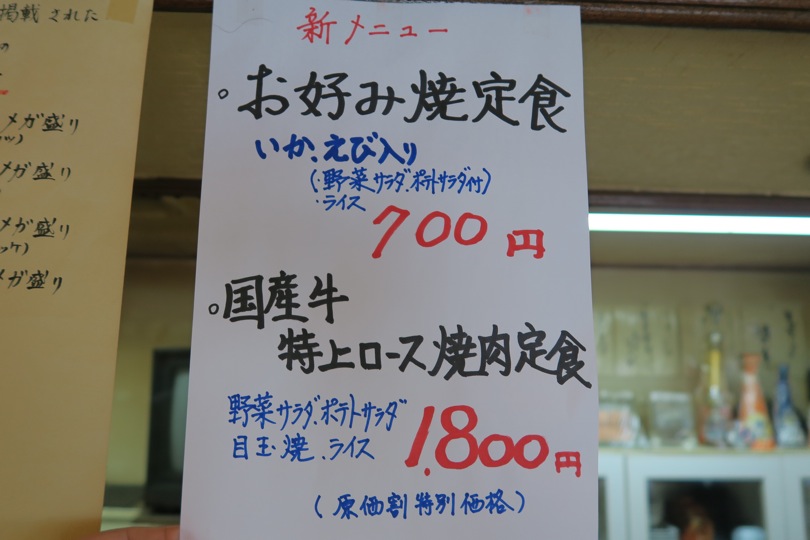 掲載された
の
メガ盛り
メガ盛り
メガ盛り
メガ盛り
新メニュー
。お好み焼定食
いか、えび入り
(・野菜サラダ、ポテトサラダ付)
・ライス
700円
。国産牛
特上ロース焼肉定食
野菜サラダ、ポテトサラダ
目玉焼、ライス
1,800円
(原価割特別価格)